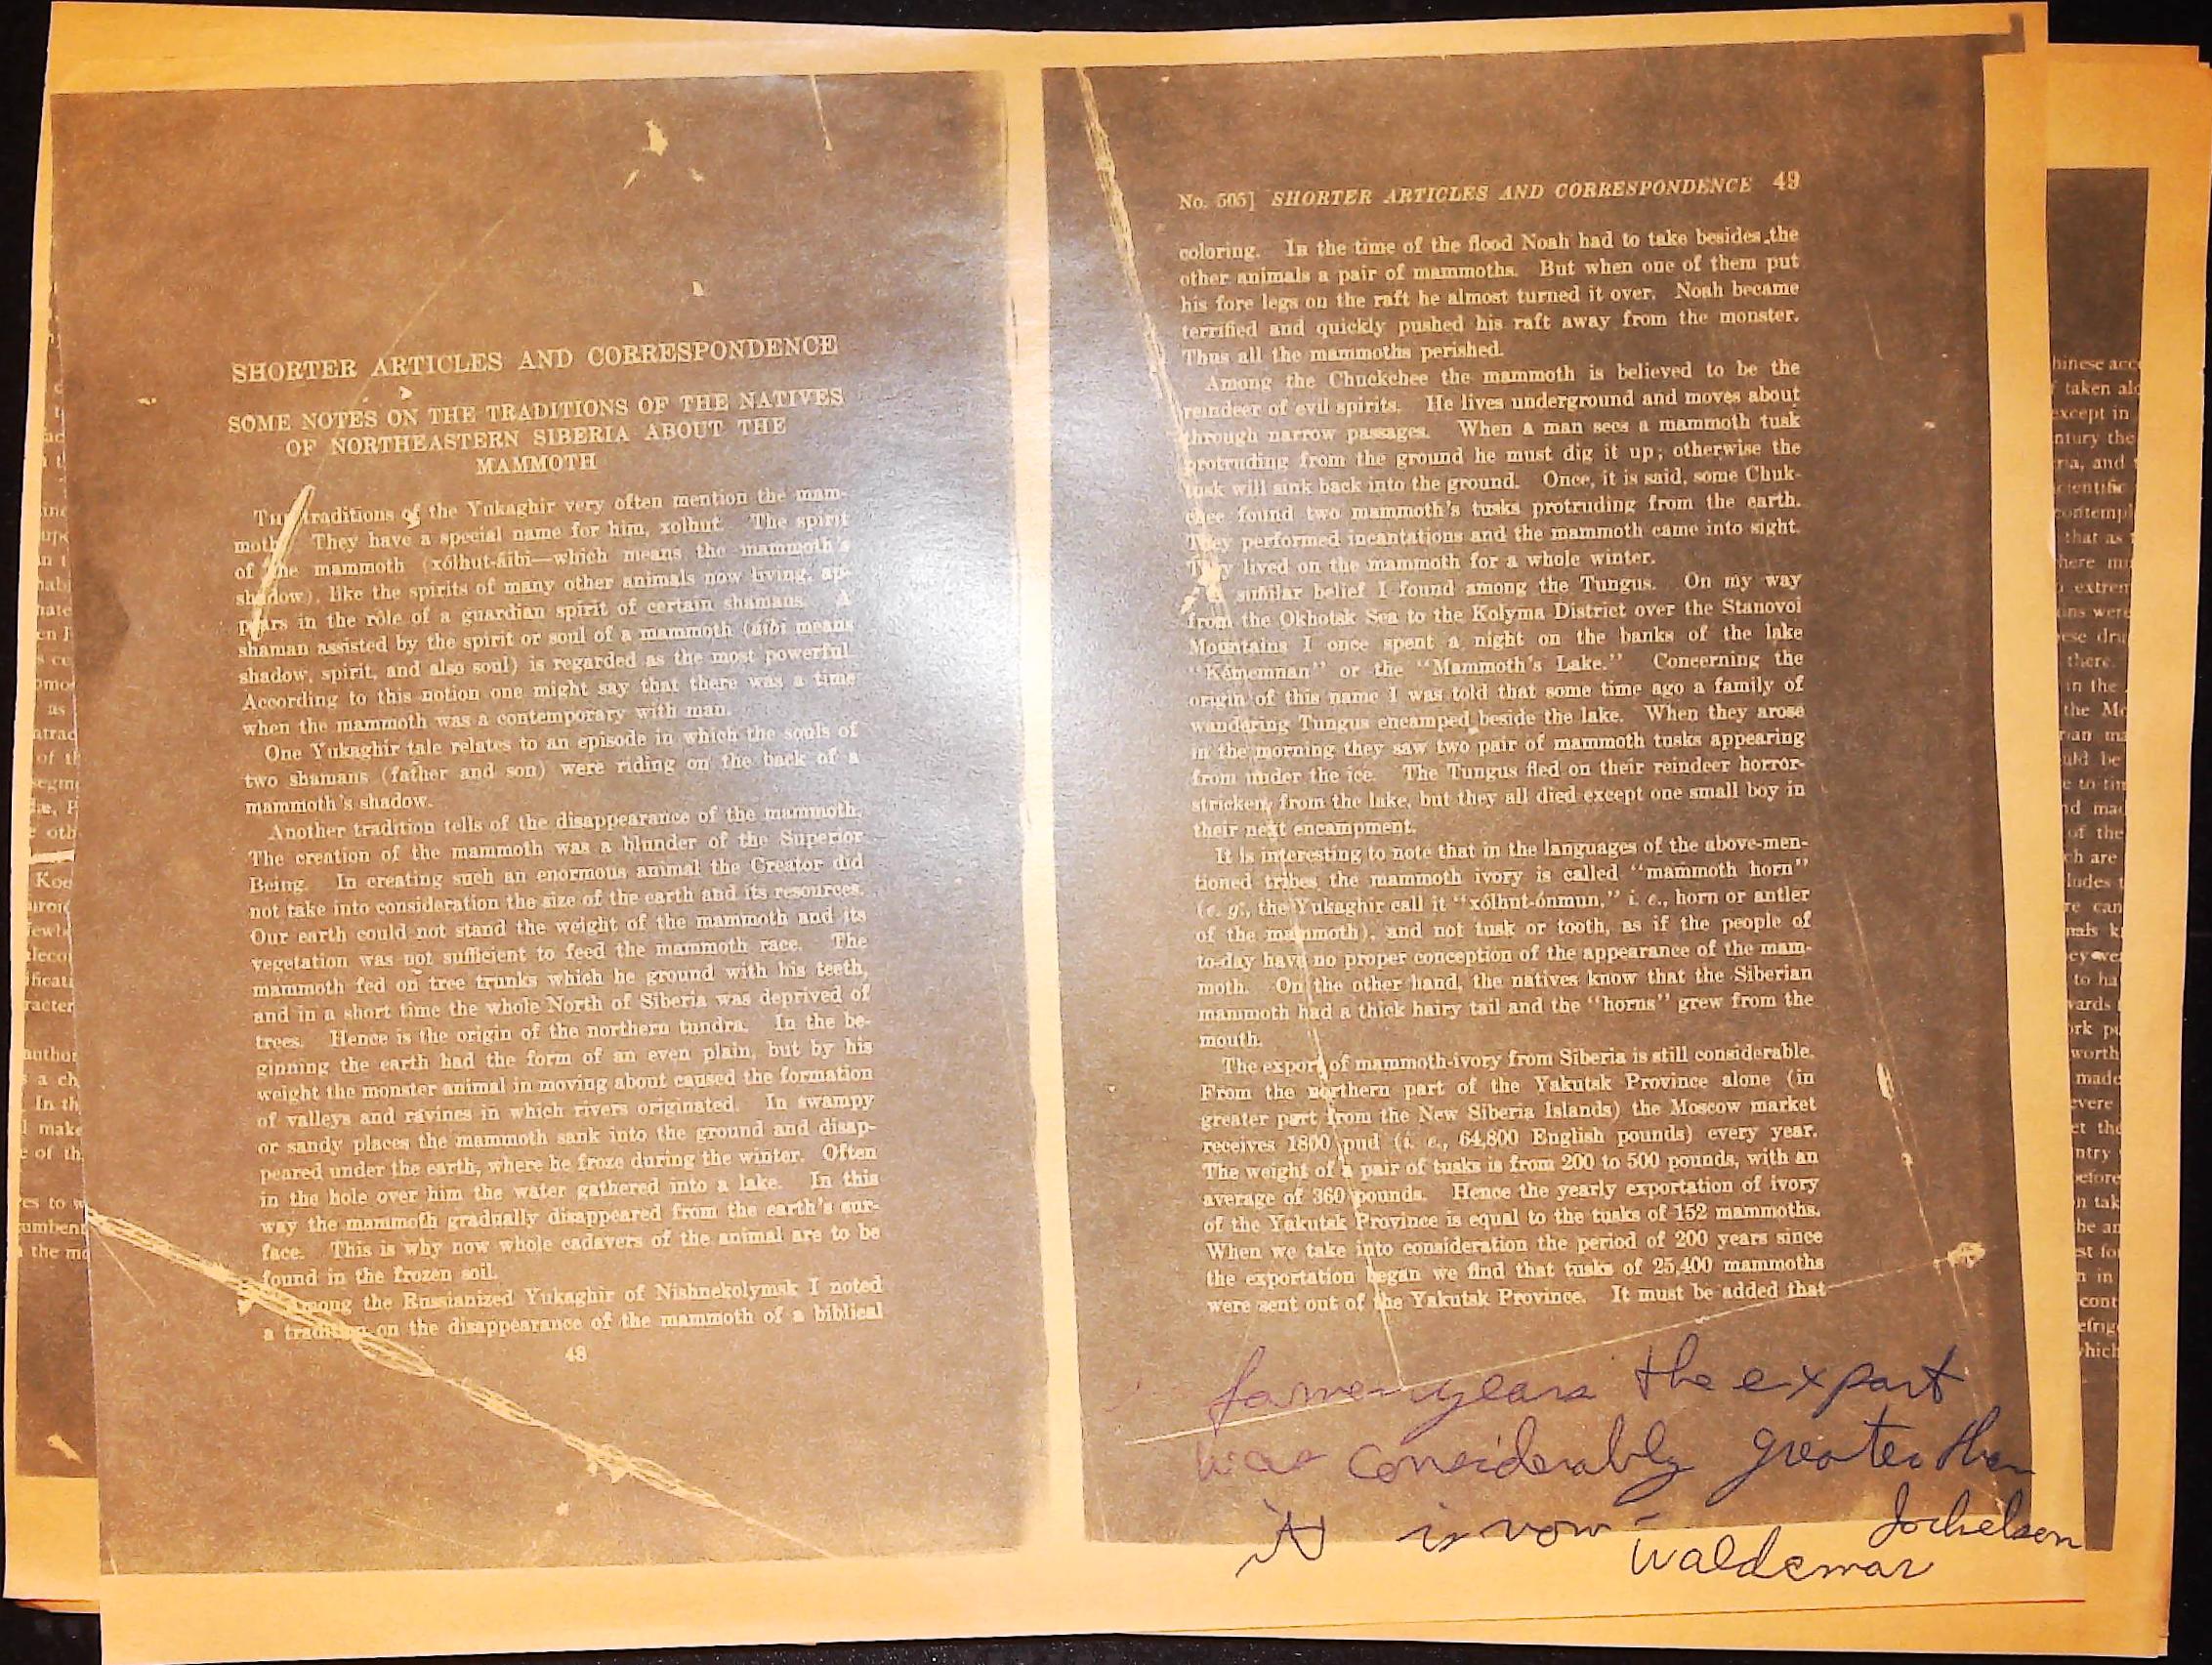 SHORTER ARTICLES AND CORRESPONDENCE
SOME NOTES ON THE TRADITIONS OF THE NATIVES
OF NORTHEASTERN SIBERIA ABOUT THE
MAMMOTH
The traditions of the Yukaghir very often mention the mam-
moth. They have a special name for him, xolhut. The spirit
of the mammoth (xólhut-áibi—which means the mammoth's
shadow), like the spirits of many other animals now living, ap-
pears in the rôle of a guardian spirit of certain shamans. A
shaman assisted by the spirit or soul of a mammoth (aíbi means
shadow, spirit, and also soul) is regarded as the most powerful.
According to this notion one might say that there was a time
when the mammoth was a contemporary with man.
One Yukaghir tale relates to an episode in which the souls of
two shamans (father and son) were riding on the back of a
mammoth's shadow.
Another tradition tells of the disappearance of the mammoth.
The creation of the mammoth was a blunder of the Superior
Being. In creating such an enormous animal the Creator did
not take into consideration the size of the earth and its resources.
Our earth could not stand the weight of the mammoth and its
vegetation was not sufficient to feed the mammoth race. The
mammoth fed on tree trunks which he ground with his teeth,
and in a short time the whole North of Siberia was deprived of
trees. Hence is the origin of the northern tundra. In the be-
ginning the earth had the form of an even plain, but by his
weight the monster animal in moving about caused the formation
of valleys and ravines in which rivers originated. In swampy
or sandy places the mammoth sank into the ground and disap-
peared under the earth, where he froze during the winter. Often
in the hole over him the water gathered into a lake. In this
way the mammoth gradually disappeared from the earth's sur-
face. This is why now whole cadavers of the animal are to be
found in the frozen soil.
Among the Russianized Yukaghir of Nishnekolymsk I noted
a tradition on the disappearance of the mammoth of a biblical
48
No. 505] SHORTER ARTICLES AND CORRESPONDENCE 49
coloring. In the time of the flood Noah had to take besides the
other animals a pair of mammoths. But when one of them put
his fore legs on the raft he almost turned it over. Noah became
terrified and quickly pushed his raft away from the monster.
Thus all the mammoths perished.
Among the Chuckchee the mammoth is believed to be the
reindeer of evil spirits. He lives underground and moves about
through narrow passages. When a man sees a mammoth tusk
protruding from the ground he must dig it up; otherwise the
tusk will sink back into the ground. Once, it is said, some Chuk-
chee found two mammoth's tusks protruding from the earth.
They performed incantations and the mammoth came into sight.
They lived on the mammoth for a whole winter.
A similar belief I found among the Tungus. On my way
from the Okhotsk Sea to the Kolyma District over the Stanovoi
Mountains I once spent a night on the banks of the lake
"Kémemnan" or the "Mammoth's Lake." Concerning the
origin of this name I was told that some time ago a family of
wandering Tungus encamped beside the lake. When they arose
in the morning they saw two pair of mammoth tusks appearing
from under the ice. The Tungus fled on their reindeer horror-
stricken from the lake, but they all died except one small boy in
their next encampment.
It is interesting to note that in the languages of the above-men-
tioned tribes the mammoth ivory is called "mammoth horn"
(e. g., the Yukaghir call it "xólhut-ónmun," i. e., horn or antler
of the mammoth), and not tusk or tooth, as if the people of
to-day have no proper conception of the appearance of the mam-
moth. On the other hand, the natives know that the Siberian
mammoth had a thick hairy tail and the "horns" grew from the
mouth.
The export of mammoth-ivory from Siberia is still considerable.
From the northern part of the Yakutsk Province alone (in
greater part from the New Siberia Islands) the Moscow market
receives 1800 pud (i. e., 64,800 English pounds) every year.
The weight of a pair of tusks is from 200 to 500 pounds, with an
average of 360 pounds. Hence the yearly exportation of ivory
of the Yakutsk Province is equal to the tusks of 152 mammoths.
When we take into consideration the period of 200 years since
the exportation began we find that tusks of 25,400 mammoths
were sent out of the Yakutsk Province. It must be added that
former years the export
was considerably greater than
it is now -
Waldemar Jochelson